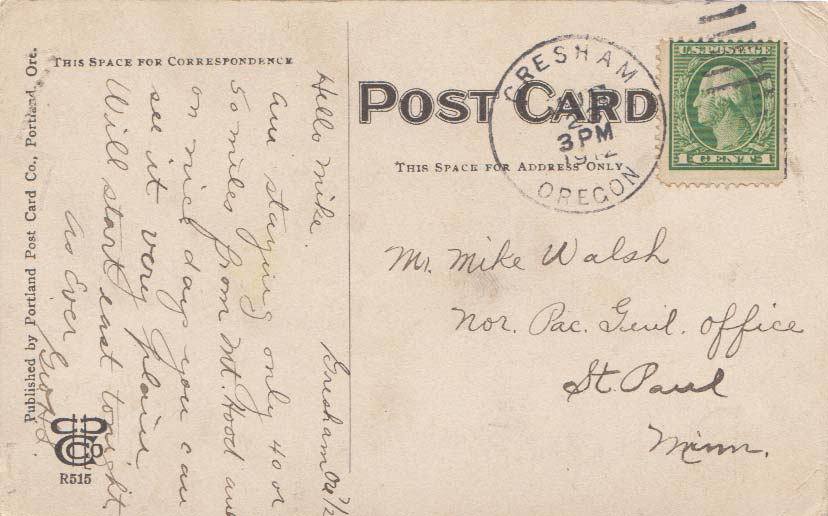 Published by Portland Post Card Co., Portland, Ore.
THIS SPACE FOR CORRESPONDENCE
Hello Mike.
Gresham
am staying only 40 or
50 miles from Mt. Hood and
on nice days you can
see it very plain.
Will start east tonight.
As Ever
R515
POST CARD
THIS SPACE FOR ADDRESS ONLY
GRESHAM
3 PM
1912
OREGON
U.S. POSTAGE
1 CENT 1
Mr. Mike Walsh
Nor. Pac. Genl. Office
St. Paul
Minn.